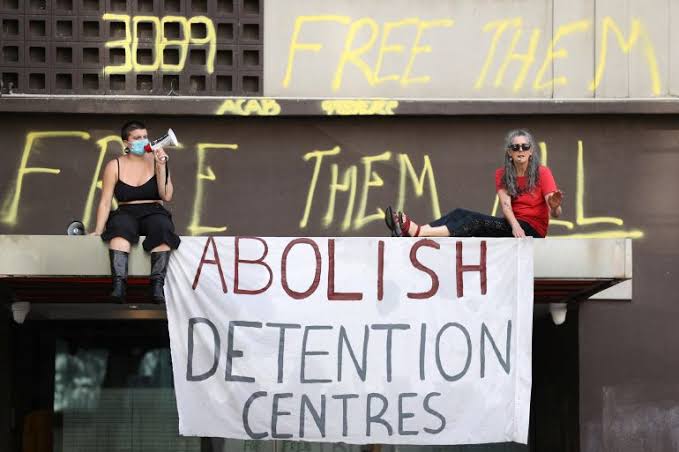 3089 FREE THEM
ACAB
FREE THEM ALL
ABOLISH
DETENTION
CENTRES